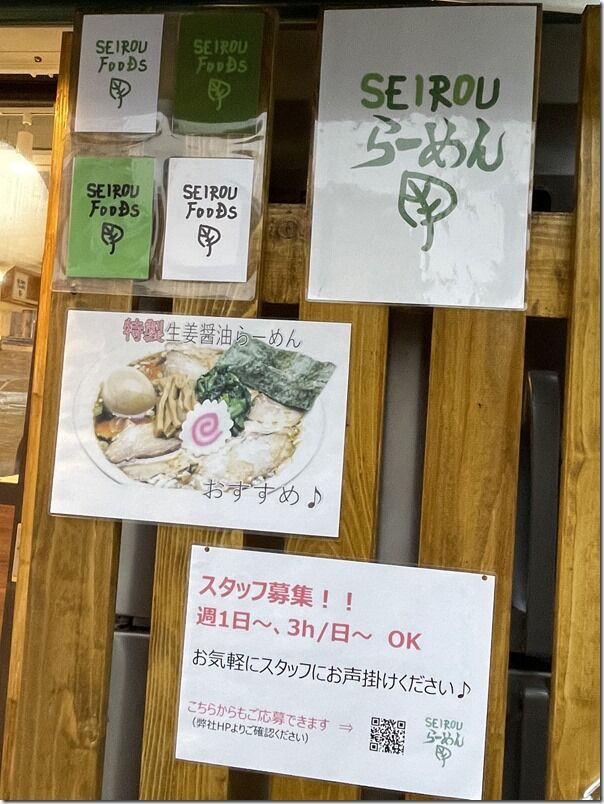 SEIROU
FOODS
SEIROU
FOODS
SEIROU
FOODS
SEIROU
FOODS
SEIROU
らーめん
特製生姜醤油らーめん
おすすめ♪
スタッフ募集！！
週1日～、3h/日～ OK
お気軽にスタッフにお声掛けください♪
こちらからもご応募できます ⇒
（弊社HPよりご確認ください）
SEIROU
らーめん